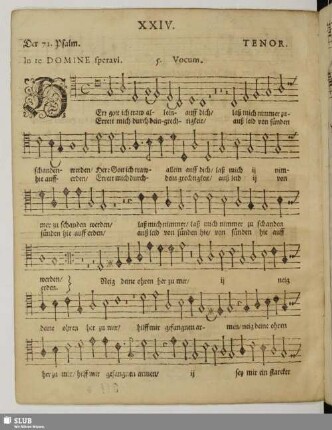 XXIV.
Der 71. Psalm. TENOR.
In te DOMINE speravi. 5. Vocum.
HErr gott ich traw al- lein auff dich/ laß mich nimmer zu-
Errett mich durch dein gerech- auß leid von sünden
schanden werden/ Herr Gott ich traw allein auff dich/ laß mich ij nim-
hie auff erden/ Errett mich durch dein auß leid ij von
mer zu schanden werden/ laß mich nimmer/ laß mich nimmer zu schanden
sünden hie auff erden/ auß leid von sünden hie/ von sünden hie auff
werden/ Neig deine ohren her zu mir/ ij neig
erden.
deine ohren her zu mir/ hilff mir ar- men/ neig deine ohren
her zu mir/ hilff mir armen/ ij sey mir ein starcker
SLUB
Wir führen Wissen.